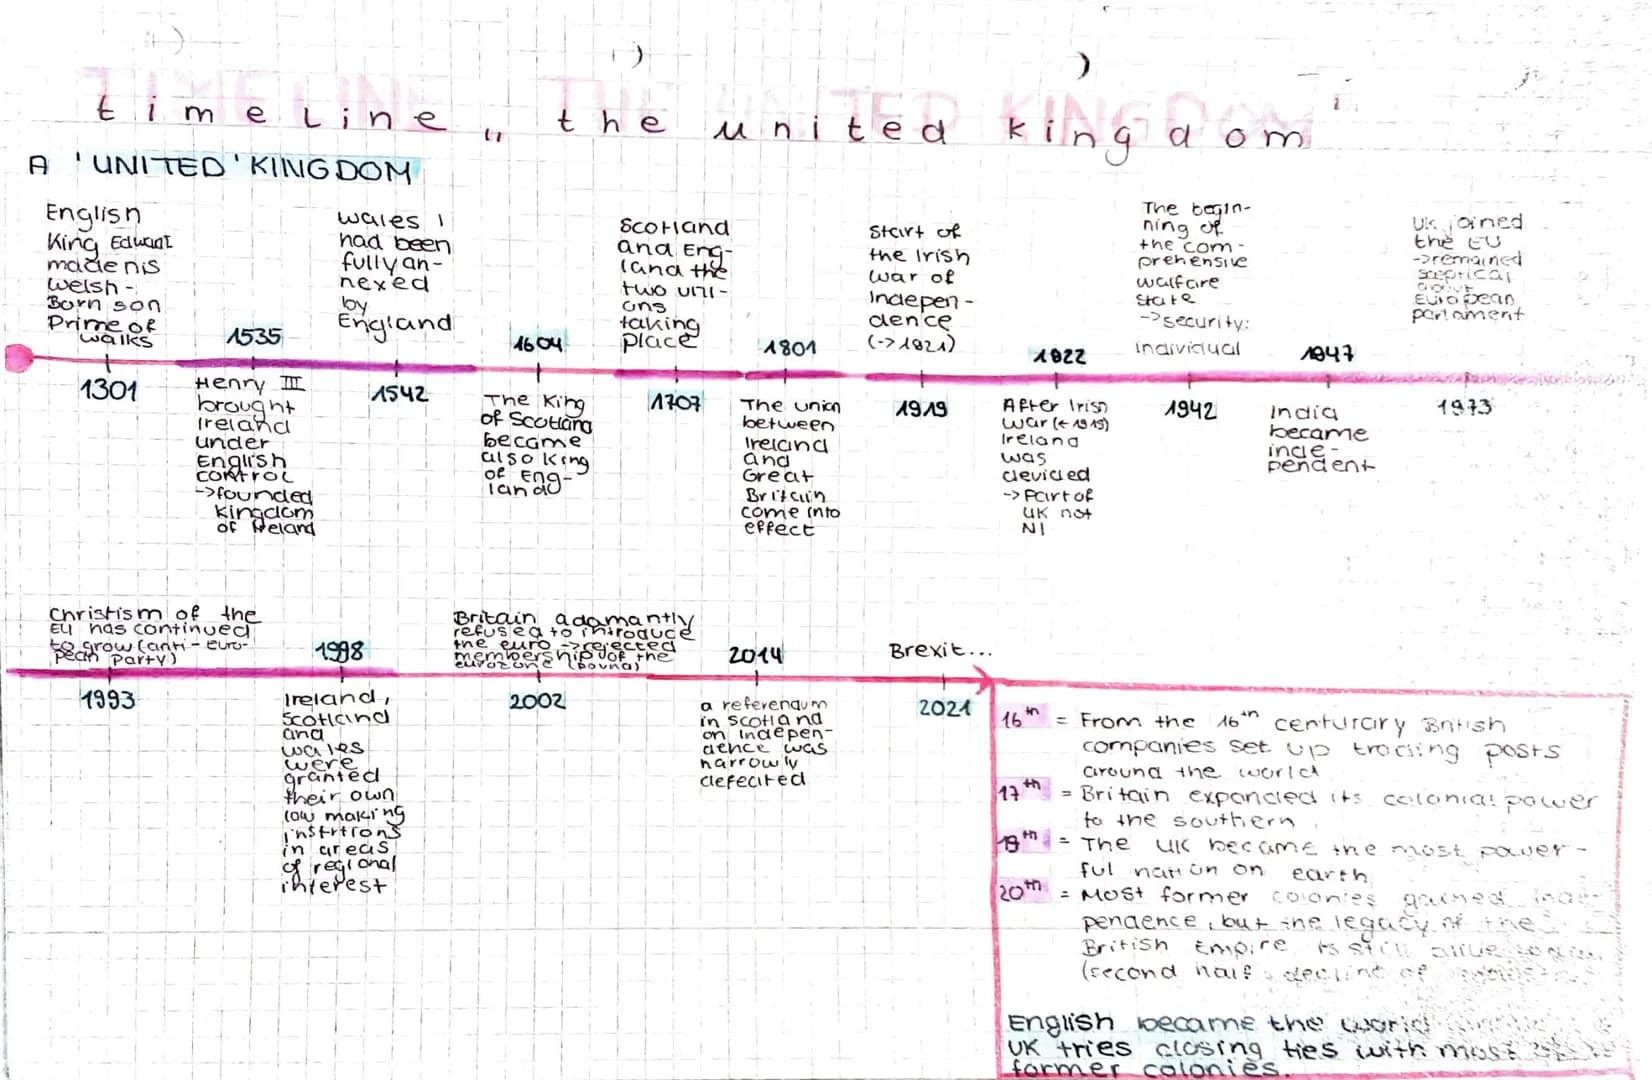 timeline „ the united kingdom "
A 'UNITED' KINGDOM
English
King Edward
made his
welsh-
Born son
Prime of
walks
1301
1535
Henry III
brought
Ireland
under
English
control
->founded
Kingdom
of Ireland
wales
had been
fully an-
nexed
by
England
1542
1604
The King
of Scotland
became
also King
of Eng-
land
Scotland
and Eng-
land the
two uni-
ons
taking
place
1707
1801
The union
between
Ireland
and
Great
Britain
come into
effect
start of
the Irish
war of
Indepen-
dence
(->1921)
1919
1922
After Irish
war (← 1919)
Ireland
was
devided
-> Part of
UK not
NI
The begin-
ning of
the com-
prehensive
walfare
state
->security:
individual
1942
1947
India
became
inde-
pendent
UK joined
the EU
->remained
sceptical
about
European
parlament
1973
Christism of the
EU has continued
to grow (anti-euro-
pean party)
1993
1998
Ireland,
Scotland
and
wales
were
granted
their own
low making
in areas
of regional
interest
Britain adamantly
refused to introduce
the euro ->rejected
membership of the
eurozone (pound)
2002
2014
a referendum
in scotland
on indepen-
dence was
narrowly
defeated
Brexit...
2021
16th = From the 16th centurary British
companies set up trading posts
around the world
17th = Britain expanded its colonial power
to the southern
19th = The UK became the most power-
ful nation on earth
20th = Most former colonies gained inde-
pendence, but the legacy of the
British Empire is still alive today
(second half: decline of
English became the world
UK tries closing ties with most
former colonies.